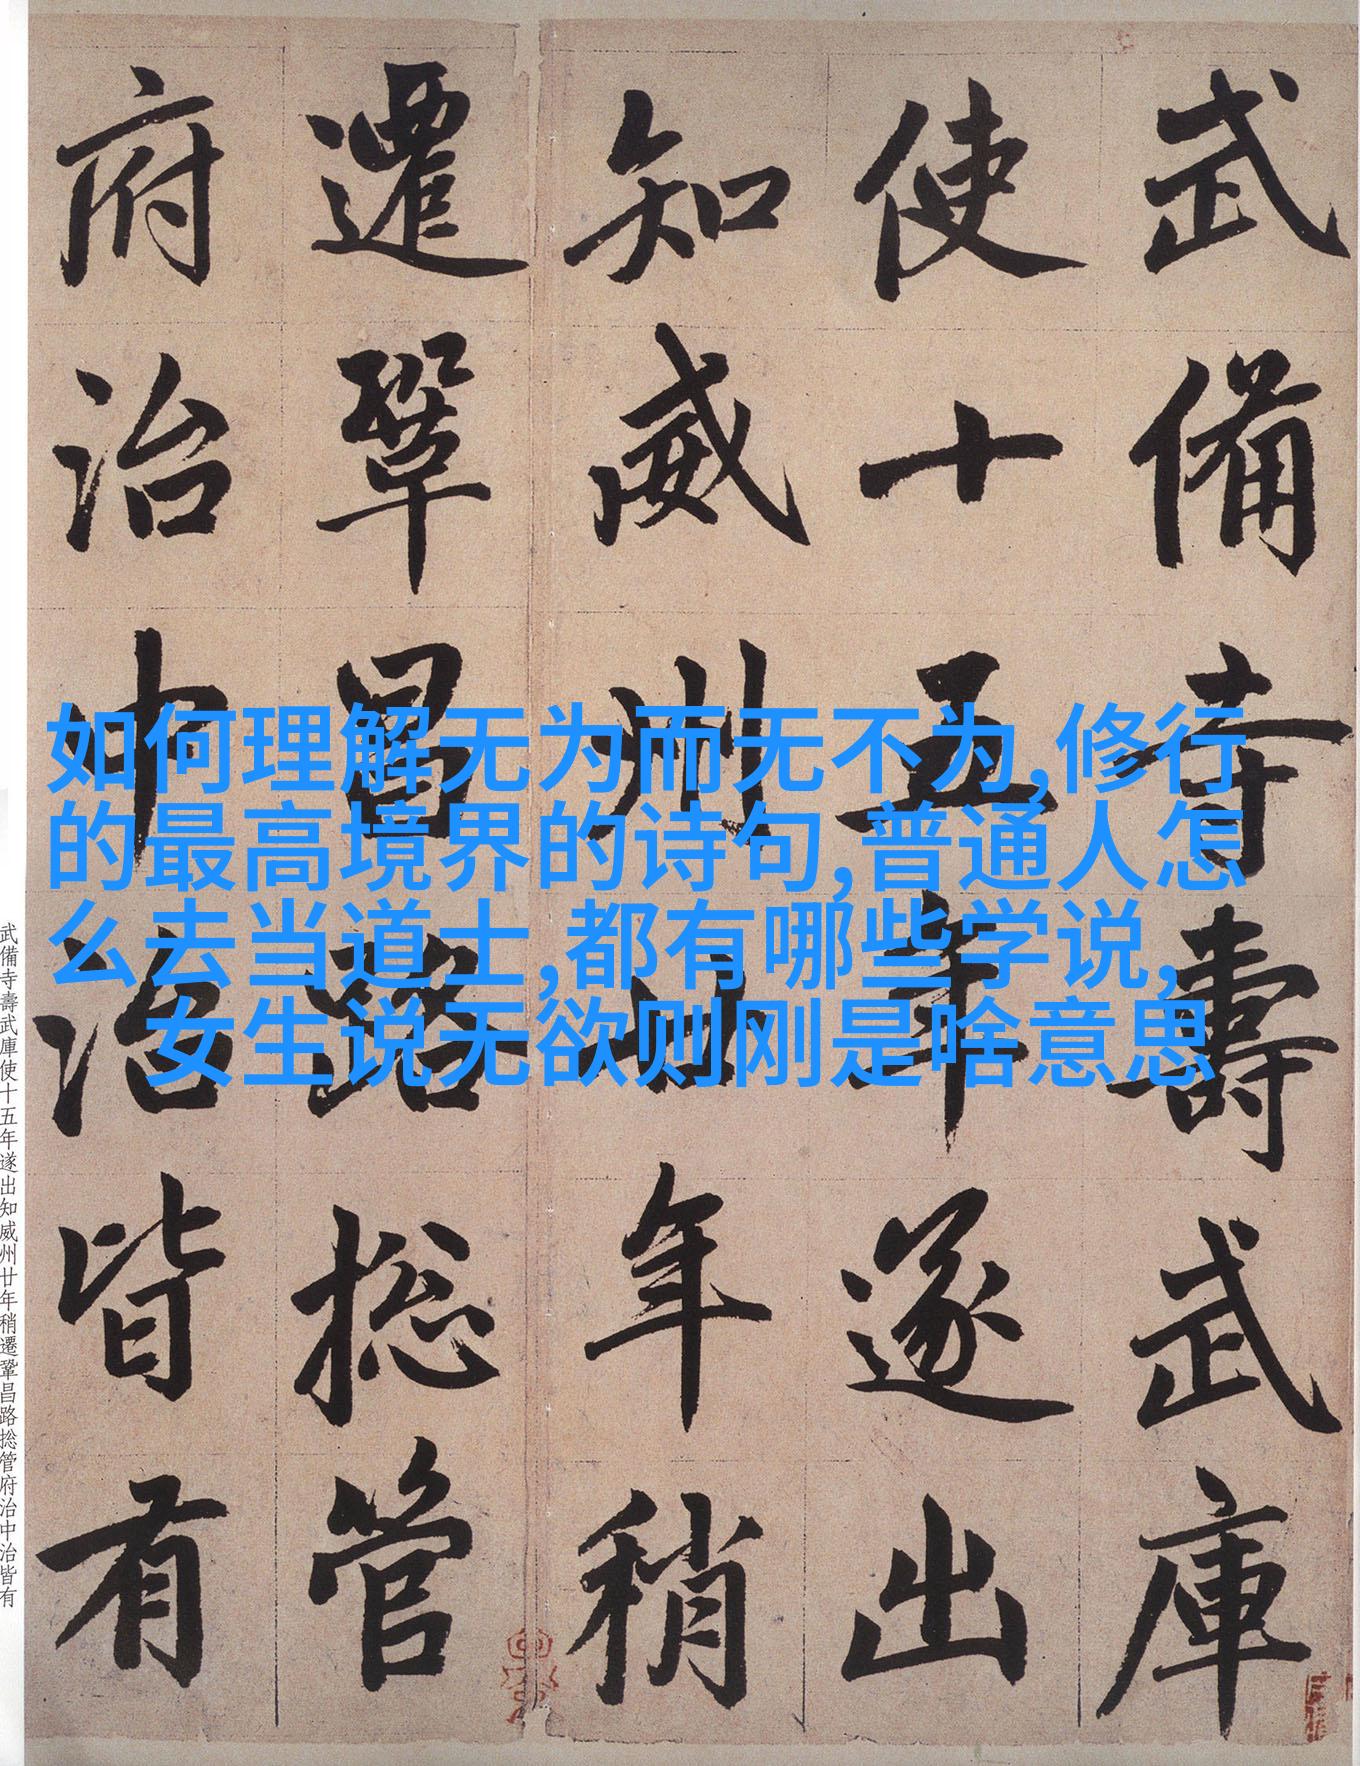 武備寺壽武庫
使十五年遂出
知威州廿年稍
遷鞏昌路捴管
府治中治皆有
如何理解无为而无不为,修行
的最高境界的诗句,普通人怎
么去当道士,都有哪些学说,
女生说无欲则刚是啥意思
武備寺壽武庫使十五年遂出知威州廿年稍遷鞏昌路捴管府治中治皆有